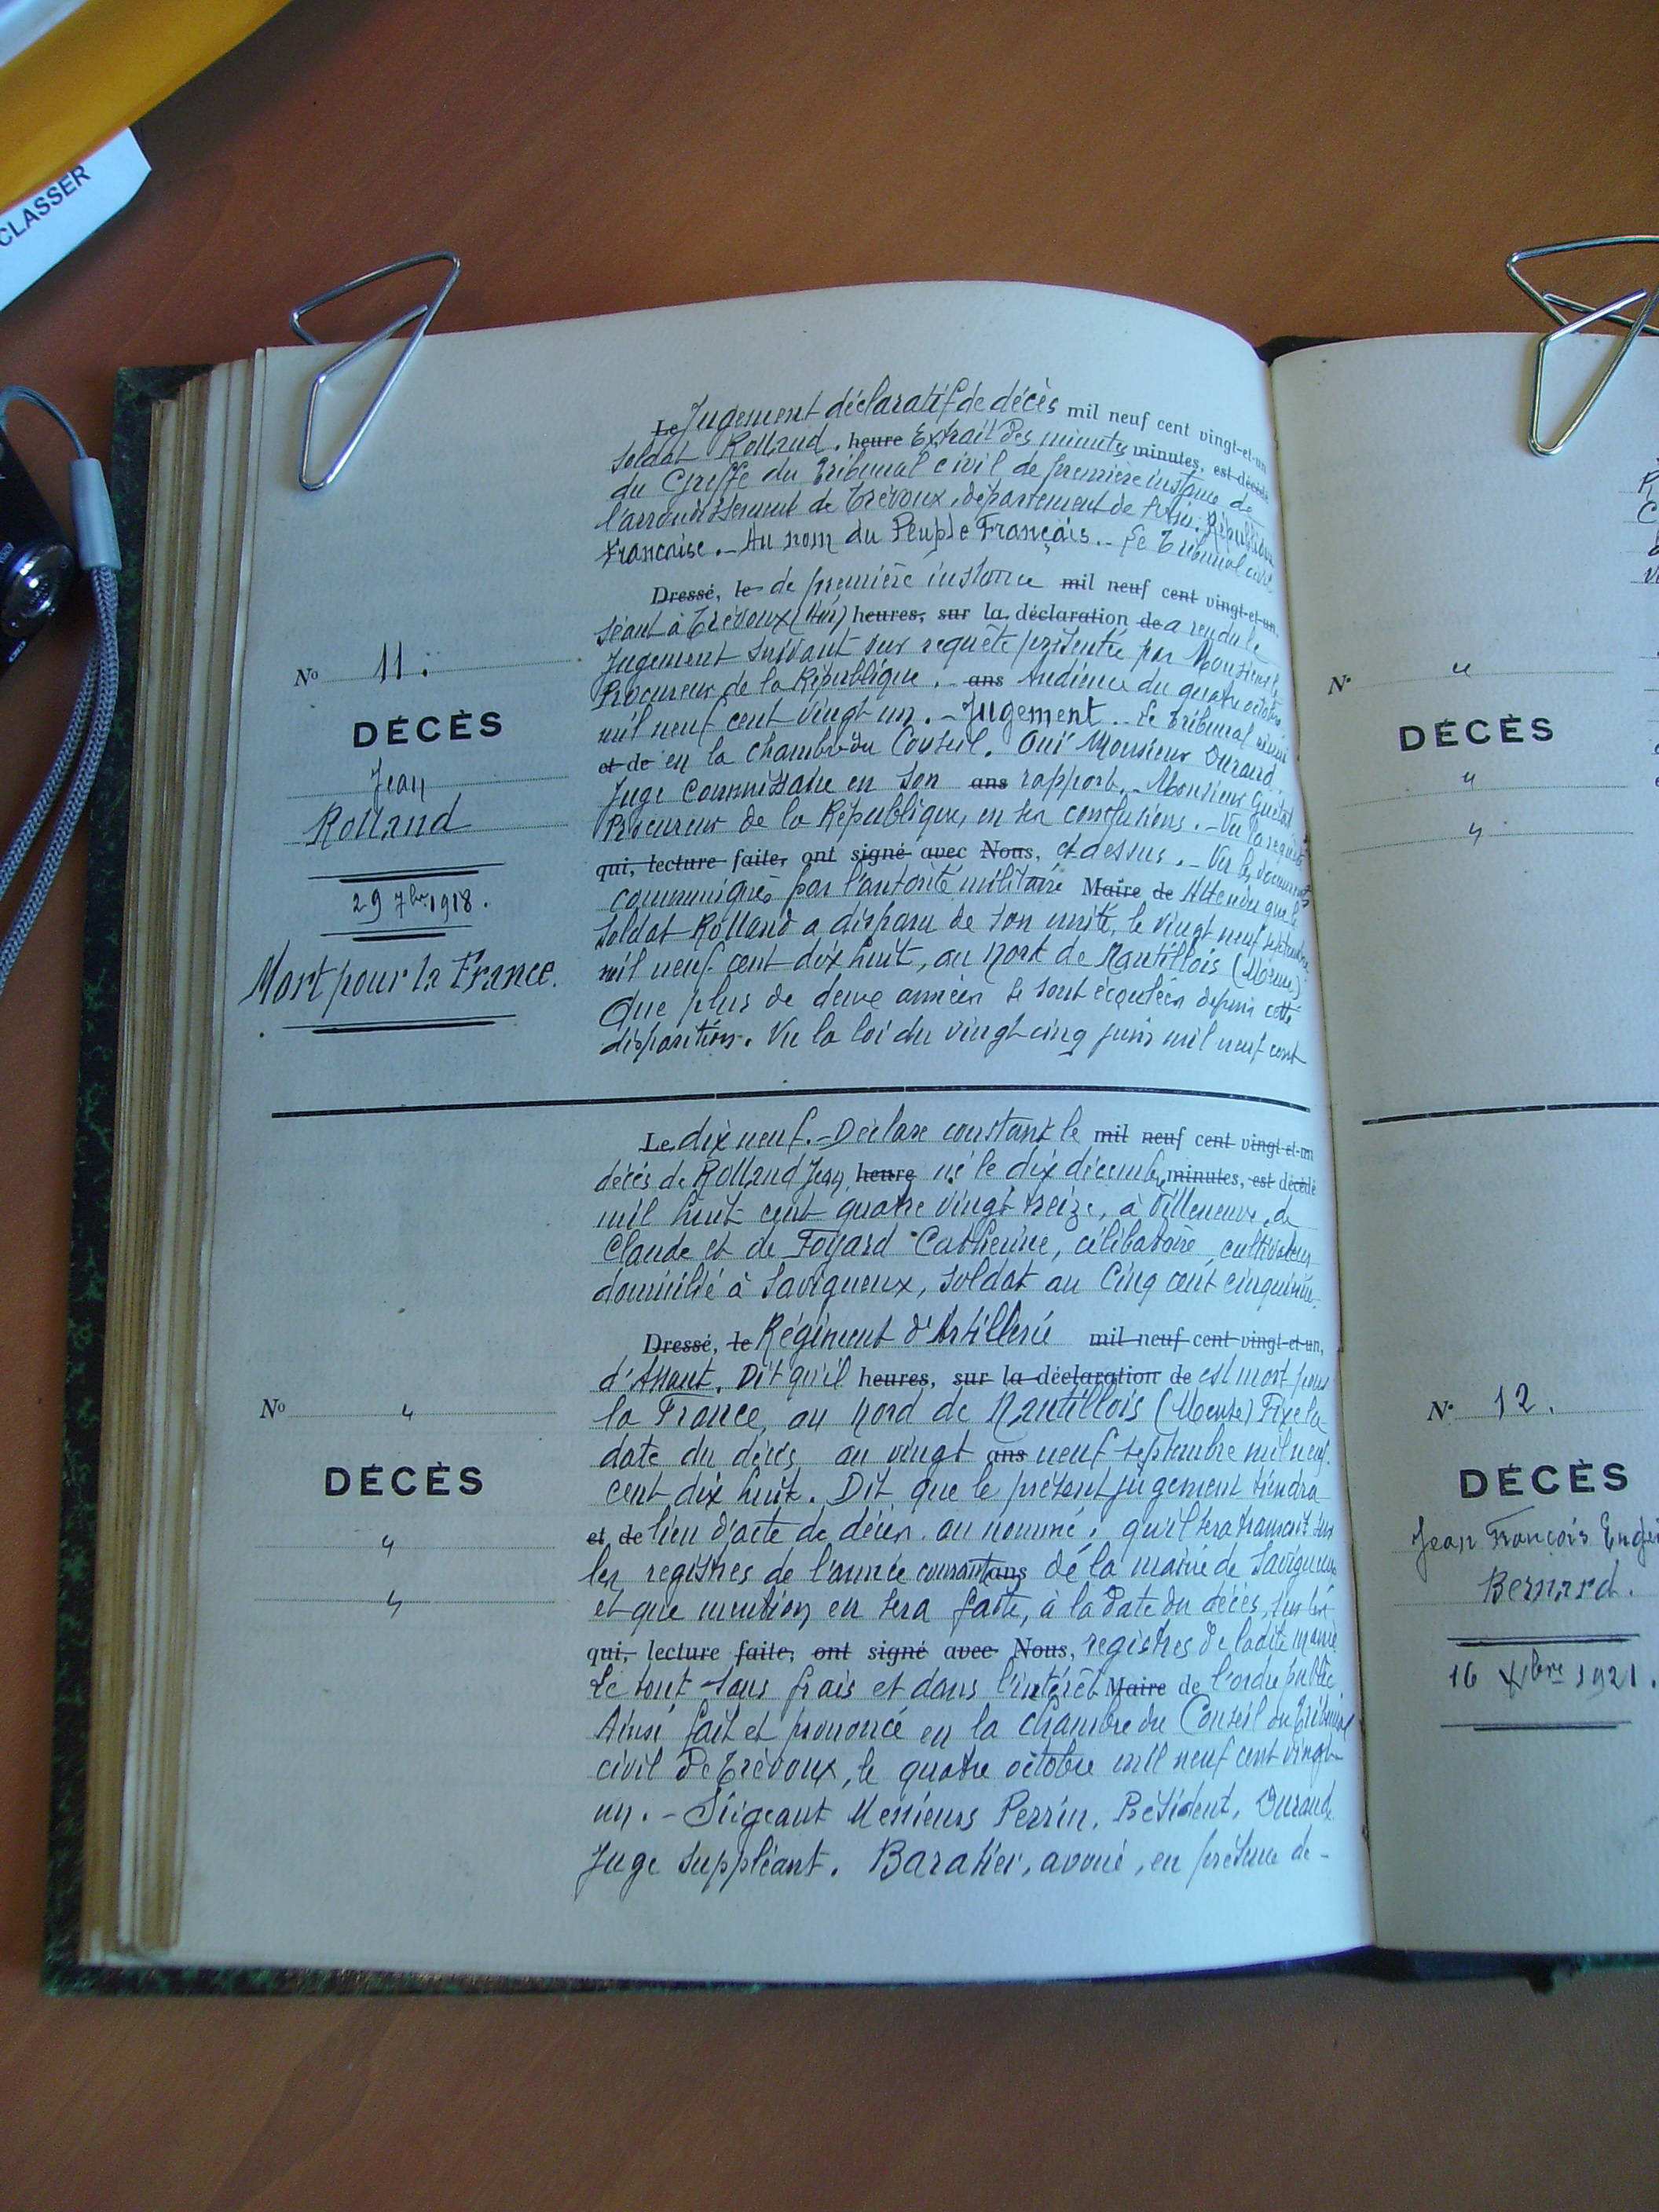 CLASSER
Le Jugement déclaratif de décès mil neuf cent vingt-et-un
soldat Rolland. heure Extrait des minutes minutes, est décédé
du Greffe du Tribunal civil de première instance de
l'arrondissement de Trévoux, département de l'Ain. République
Française. _ Au nom du Peuple Français. _ Le Tribunal civil
Dressé, le de première instance mil neuf cent vingt-et-un,
séant à Trévoux (Ain) heures, sur la déclaration de a rendu le
Jugement suivant sur requête présentée par Monsieur le
Procureur de la République. _ ans Audience du quatre octobre
mil neuf cent vingt un. _ Jugement. _ Le Tribunal réuni
et de en la chambre du Conseil. Ouï Monsieur Durand,
Juge Commissaire en son ans rapport. _ Monsieur
Procureur de la République, en ses conclusions. _ Vu la requête
qui, lecture faite, ont signé avec Nous, ci-dessus. _ Vu les documents
communiqués par l'autorité militaire Maire de Attendu que le
soldat Rolland a disparu de son unité, le vingt neuf septembre
mil neuf cent dix huit, au Nord de Nantillois (Meuse)
Que plus de deux années se sont écoulées depuis cette
disparition. Vu la loi du vingt cinq juin mil neuf cent
No 11.
DÉCÈS
Jean
Rolland
29 7bre 1918.
Mort pour la France.
Le dix neuf. _ Déclare constant le mil neuf cent vingt-et-un
décès de Rolland Jean heure né le dix décembre minutes, est décédé
mil huit cent quatre vingt treize, à Villeneuve, de
Claude et de Foyard Catherine, célibataire cultivateur
domicilié à Savigneux, soldat au Cinq cent cinquième
Dressé, le Régiment d'Artillerie mil neuf cent vingt-et-un,
d'Assaut. Dit qu'il heures, sur la déclaration de est mort pour
la France, au Nord de Nantillois (Meuse) Fixe la
date du décès, au vingt ans neuf septembre mil neuf
cent dix huit. Dit que le présent jugement tiendra
et de lieu d'acte de décès au nommé, qu'il sera transcrit sur
les registres de l'année courante ans de la mairie de Savigneux
et que mention en sera faite, à la date du décès, sur les
qui, lecture faite, ont signé avec Nous, registres de ladite mairie
Le tout sans frais et dans l'intérêt Maire de l'ordre public
Ainsi fait et prononcé en la Chambre du Conseil du Tribunal
civil de Trévoux, le quatre octobre mil neuf cent vingt
un. _ Siégeant Messieurs Perrin, Président, Durand
Juge Suppléant. Baratier, avoué, en présence de -
No "
DÉCÈS
"
"
No "
DÉCÈS
"
"
No 12.
DÉCÈS
Jean François
Bernard.
16 Xbre 1921.